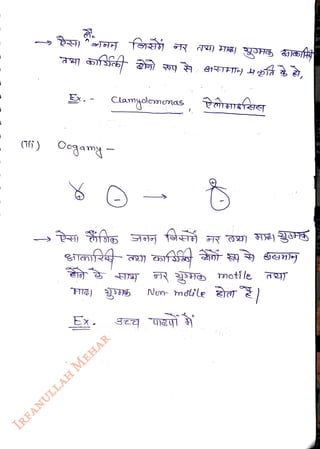 → ऐसा लैं. जनन जिसमें नर तथा मादा युग्मक आकारिकी
तथा कार्यिकी दोनो रूप से असमान प्रकृति के हो,
Ex. - Clamydomonas, ऐलोमाइसिस
(iii) Oogamy -
→ ऐसा लैंगिक जनन जिसमें नर तथा मादा युग्मक
आकारिकी तथा कार्यिकी दोनों रूप से असमान
होने के साथ नर युग्मक motile तथा
मादा युग्मक Non-motile होता है।
Ex. उच्च पादपों में
IRFANULLAH MEHAR